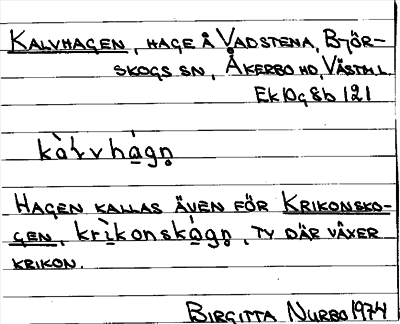 KALVHAGEN, HAGE Å VADSTENA, BJÖR-
SKOGS SN, ÅKERBO HD, VÄSTM.L.
Ek 10g 8b 121
kàɽvhágn̥
HAGEN KALLAS ÄVEN FÖR KRIKONSKO-
GEN, krìkonskágn̥, TY DÄR VÄXER
KRIKON.
BIRGITTA NURBO 1974